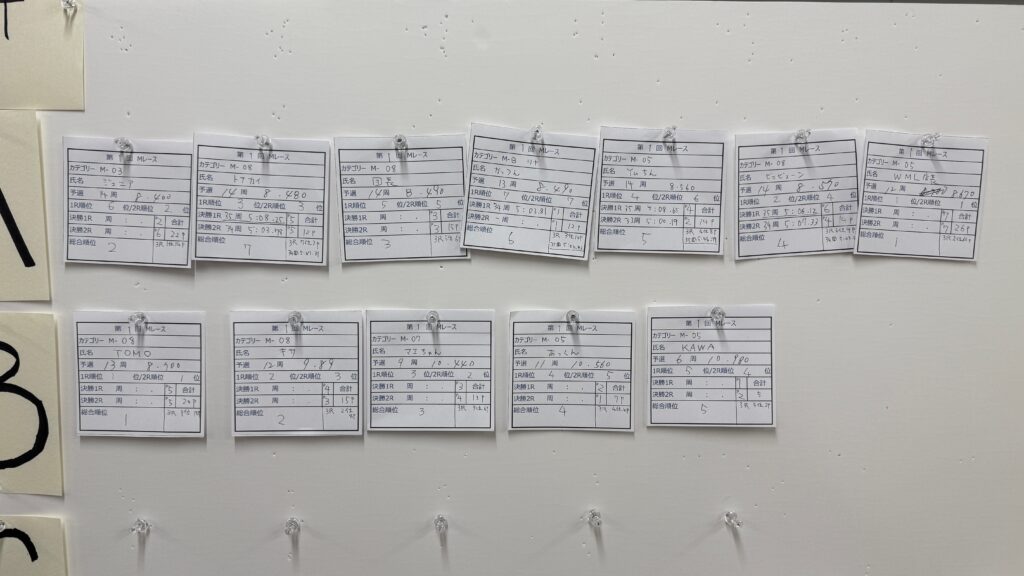 A
第1回 Mレース
カテゴリー M-03
氏名 ジュニア
予選 14周 8.400
1R順位 6位/2R順位 2位
決勝1R 周 : . 2 合計
決勝2R 周 : . 6 22P
総合順位 2
第1回 Mレース
カテゴリー M-08
氏名 トナカイ
予選 14周 8.480
1R順位 3位/2R順位 3位
決勝1R 35周 5:08.25 5 合計
決勝2R 34周 5:03.98 5
総合順位 7
第1回 Mレース
カテゴリー M-08
氏名
予選 14周 8.490
1R順位 5位/2R順位 5位
決勝1R 周 : . 3 合計
決勝2R 周 : . 3 15P
総合順位 3
第1回 Mレース
カテゴリー M-
氏名
予選 13周 8.490
1R順位 7位/2R順位 7位
決勝1R 34周 5:03.81 1 合計
決勝2R 周 : .
総合順位 6
第1回 Mレース
カテゴリー M-05
氏名 Yuちん
予選 14周 8.560
1R順位 4位/2R順位 6位
決勝1R 35周 5:08.65 4 合計
決勝2R 33周 5:00.19 2
総合順位 5
第1回 Mレース
カテゴリー M-08
氏名 ビュビューン
予選 14周 8.590
1R順位 2位/2R順位 4位
決勝1R 35周 5:06.12 6 合計
決勝2R 34周 5:07.33 4
総合順位 4
第1回 Mレース
カテゴリー M-05
氏名 WML
予選 12周 8.670
1R順位 1位/2R順位 1位
決勝1R 周 : . 合計
決勝2R 周 : . 7 26P
総合順位 1
B
第1回 Mレース
カテゴリー M-08
氏名 TOMO
予選 13周 8.900
1R順位 1位/2R順位 1位
決勝1R 周 : . 5 合計
決勝2R 周 : . 5 24P
総合順位 1
第1回 Mレース
カテゴリー M-08
氏名 キク
予選 12周 9.89
1R順位 2位/2R順位 3位
決勝1R 周 : . 4 合計
決勝2R 周 : . 3 15P
総合順位 2
第1回 Mレース
カテゴリー M-07
氏名 マエちゃん
予選 9周 10.440
1R順位 3位/2R順位 2位
決勝1R 周 : . 3 合計
決勝2R 周 : . 4 12P
総合順位 3
第1回 Mレース
カテゴリー M-05
氏名 あっしん
予選 11周 10.560
1R順位 4位/2R順位 5位
決勝1R 周 : . 2 合計
決勝2R 周 : . 1 7P
総合順位 4
第1回 Mレース
カテゴリー M-05
氏名 KAWA
予選 6周 10.980
1R順位 5位/2R順位 4位
決勝1R 周 : . 1 合計
決勝2R 周 : . 2 5
総合順位 5